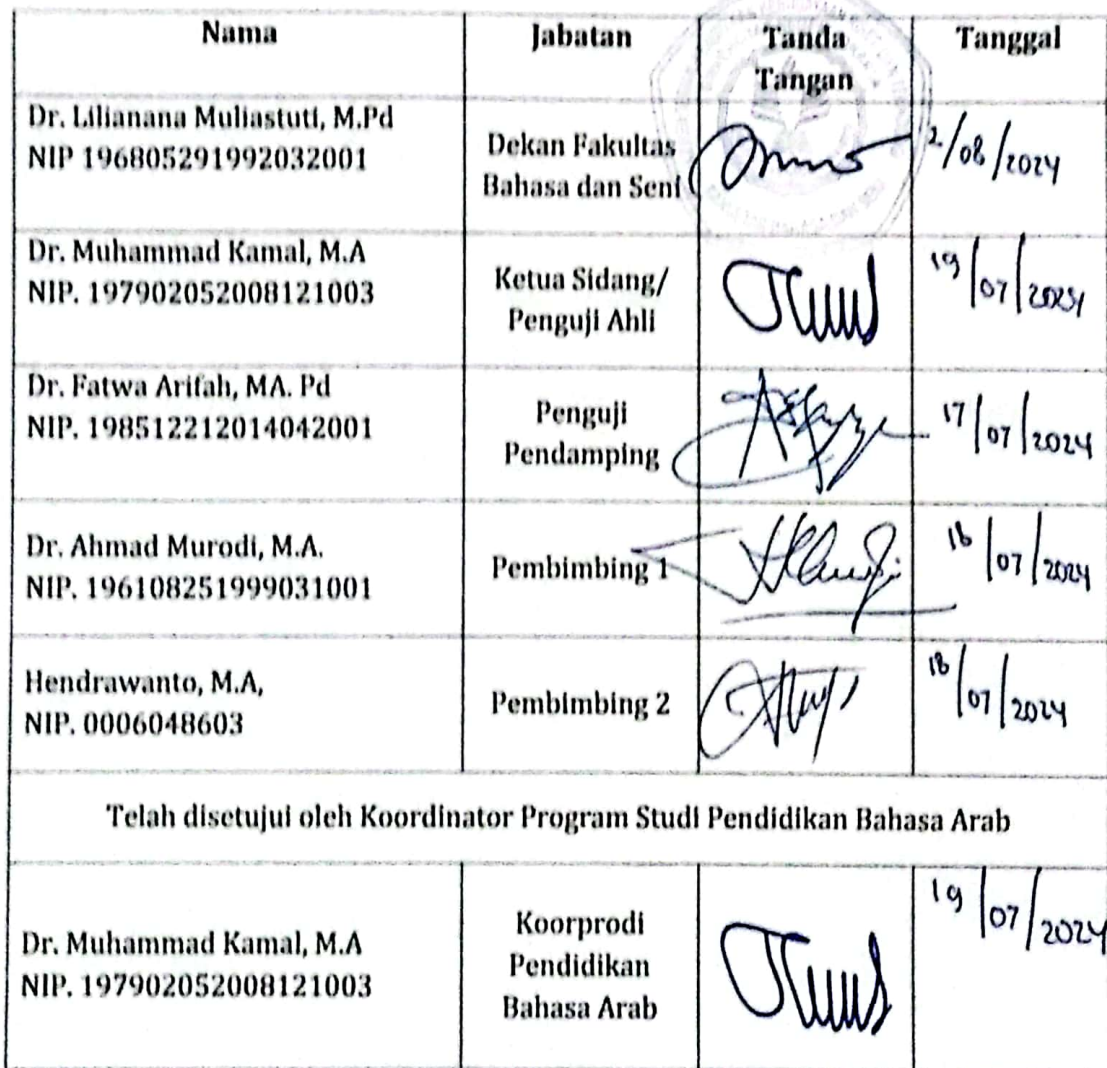 Nama Jabatan Tanda Tanggal
Tangan
Dr. Lilianana Muliastuti, M.Pd
NIP 196805291992032001
Dekan Fakultas
Bahasa dan Seni
2/08/2024
Dr. Muhammad Kamal, M.A
NIP. 197902052008121003
Ketua Sidang/
Penguji Ahli
19/07/2024
Dr. Fatwa Arifah, MA. Pd
NIP. 198512212014042001
Penguji
Pendamping
17/07/2024
Dr. Ahmad Murodi, M.A.
NIP. 196108251999031001
Pembimbing 1
/07/2024
Hendrawanto, M.A,
NIP. 0006048603
Pembimbing 2
18/07/2024
Telah disetujui oleh Koordinator Program Studi Pendidikan Bahasa Arab
Dr. Muhammad Kamal, M.A
NIP. 197902052008121003
Koorprodi
Pendidikan
Bahasa Arab
19/07/2024